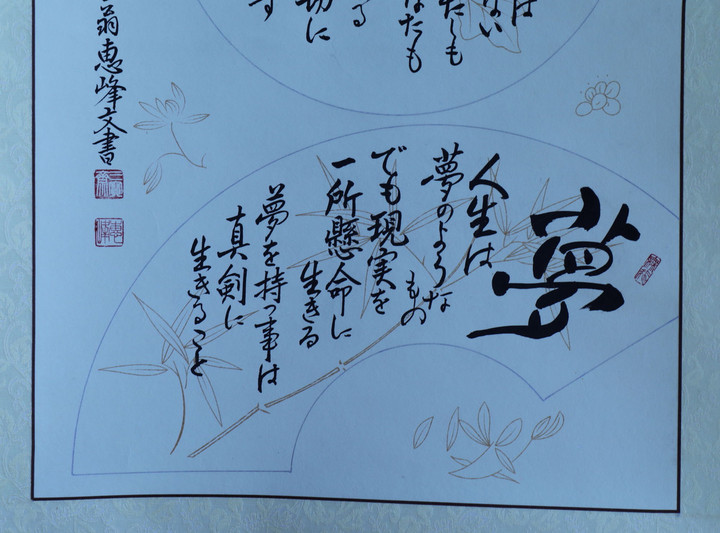 は
ない
たしも
なたも
る
切に
す
翁恵峰文書
夢
人生は
夢のような
もの
でも現実を
一所懸命に
生きる
夢を持つ事は
真剣に
生きること